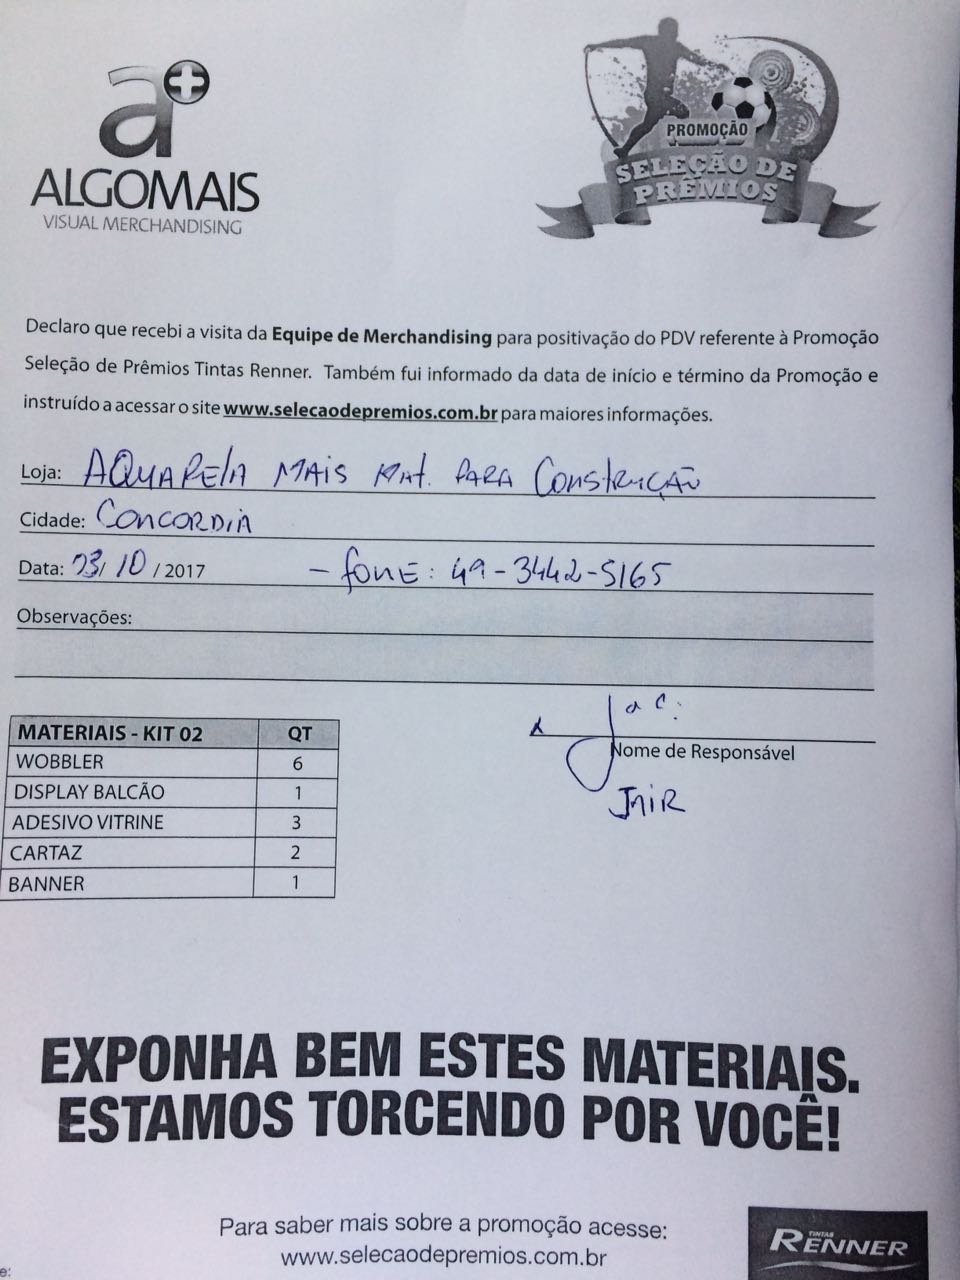 a+
ALGOMAIS
VISUAL MERCHANDISING
PROMOÇÃO
SELEÇÃO DE
PRÊMIOS
Declaro que recebi a visita da Equipe de Merchandising para positivação do PDV referente à Promoção
Seleção de Prêmios Tintas Renner. Também fui informado da data de início e término da Promoção e
instruído a acessar o site www.selecaodepremios.com.br para maiores informações.
Loja: AQUARELA MAIS MAT. PARA CONSTRUÇÃO
Cidade: CONCORDIA
Data: 23/10/2017 - fone: 49-3442-5165
Observações:
Nome de Responsável
JAIR
MATERIAIS - KIT 02 QT
WOBBLER 6
DISPLAY BALCÃO 1
ADESIVO VITRINE 3
CARTAZ 2
BANNER 1
EXPONHA BEM ESTES MATERIAIS.
ESTAMOS TORCENDO POR VOCÊ!
Para saber mais sobre a promoção acesse:
www.selecaodepremios.com.br
TINTAS
RENNER
e: